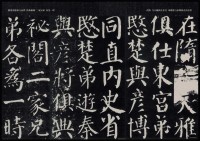 在隋大雅
俱仕東宮弟
愍楚與彥博
同直內史省
愍楚弟遊秦
與彥將俱典
祕閣二家兄
弟各為一時